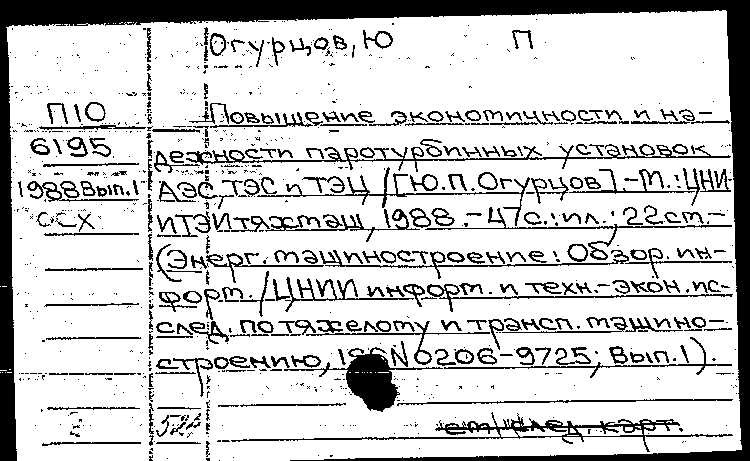 Огурцов, Ю П
П10 Повышение экономичности и на-
6195 дежности паротурбинных установок
1988 Вып.1 АЭС, ТЭС и ТЭЦ / [Ю.П.Огурцов].-М.:ЦНИ-
ОСХ ИТЭИтяжмаш, 1988.-47с.:ил.; 22см.-
(Энерг. машиностроение: Обзор. ин-
форм. / ЦНИИ информ. и техн.-экон. ис-
след. по тяжелому и трансп. машино-
строению, ISSN 0206-9725; Вып.1).
2 см след. карт.